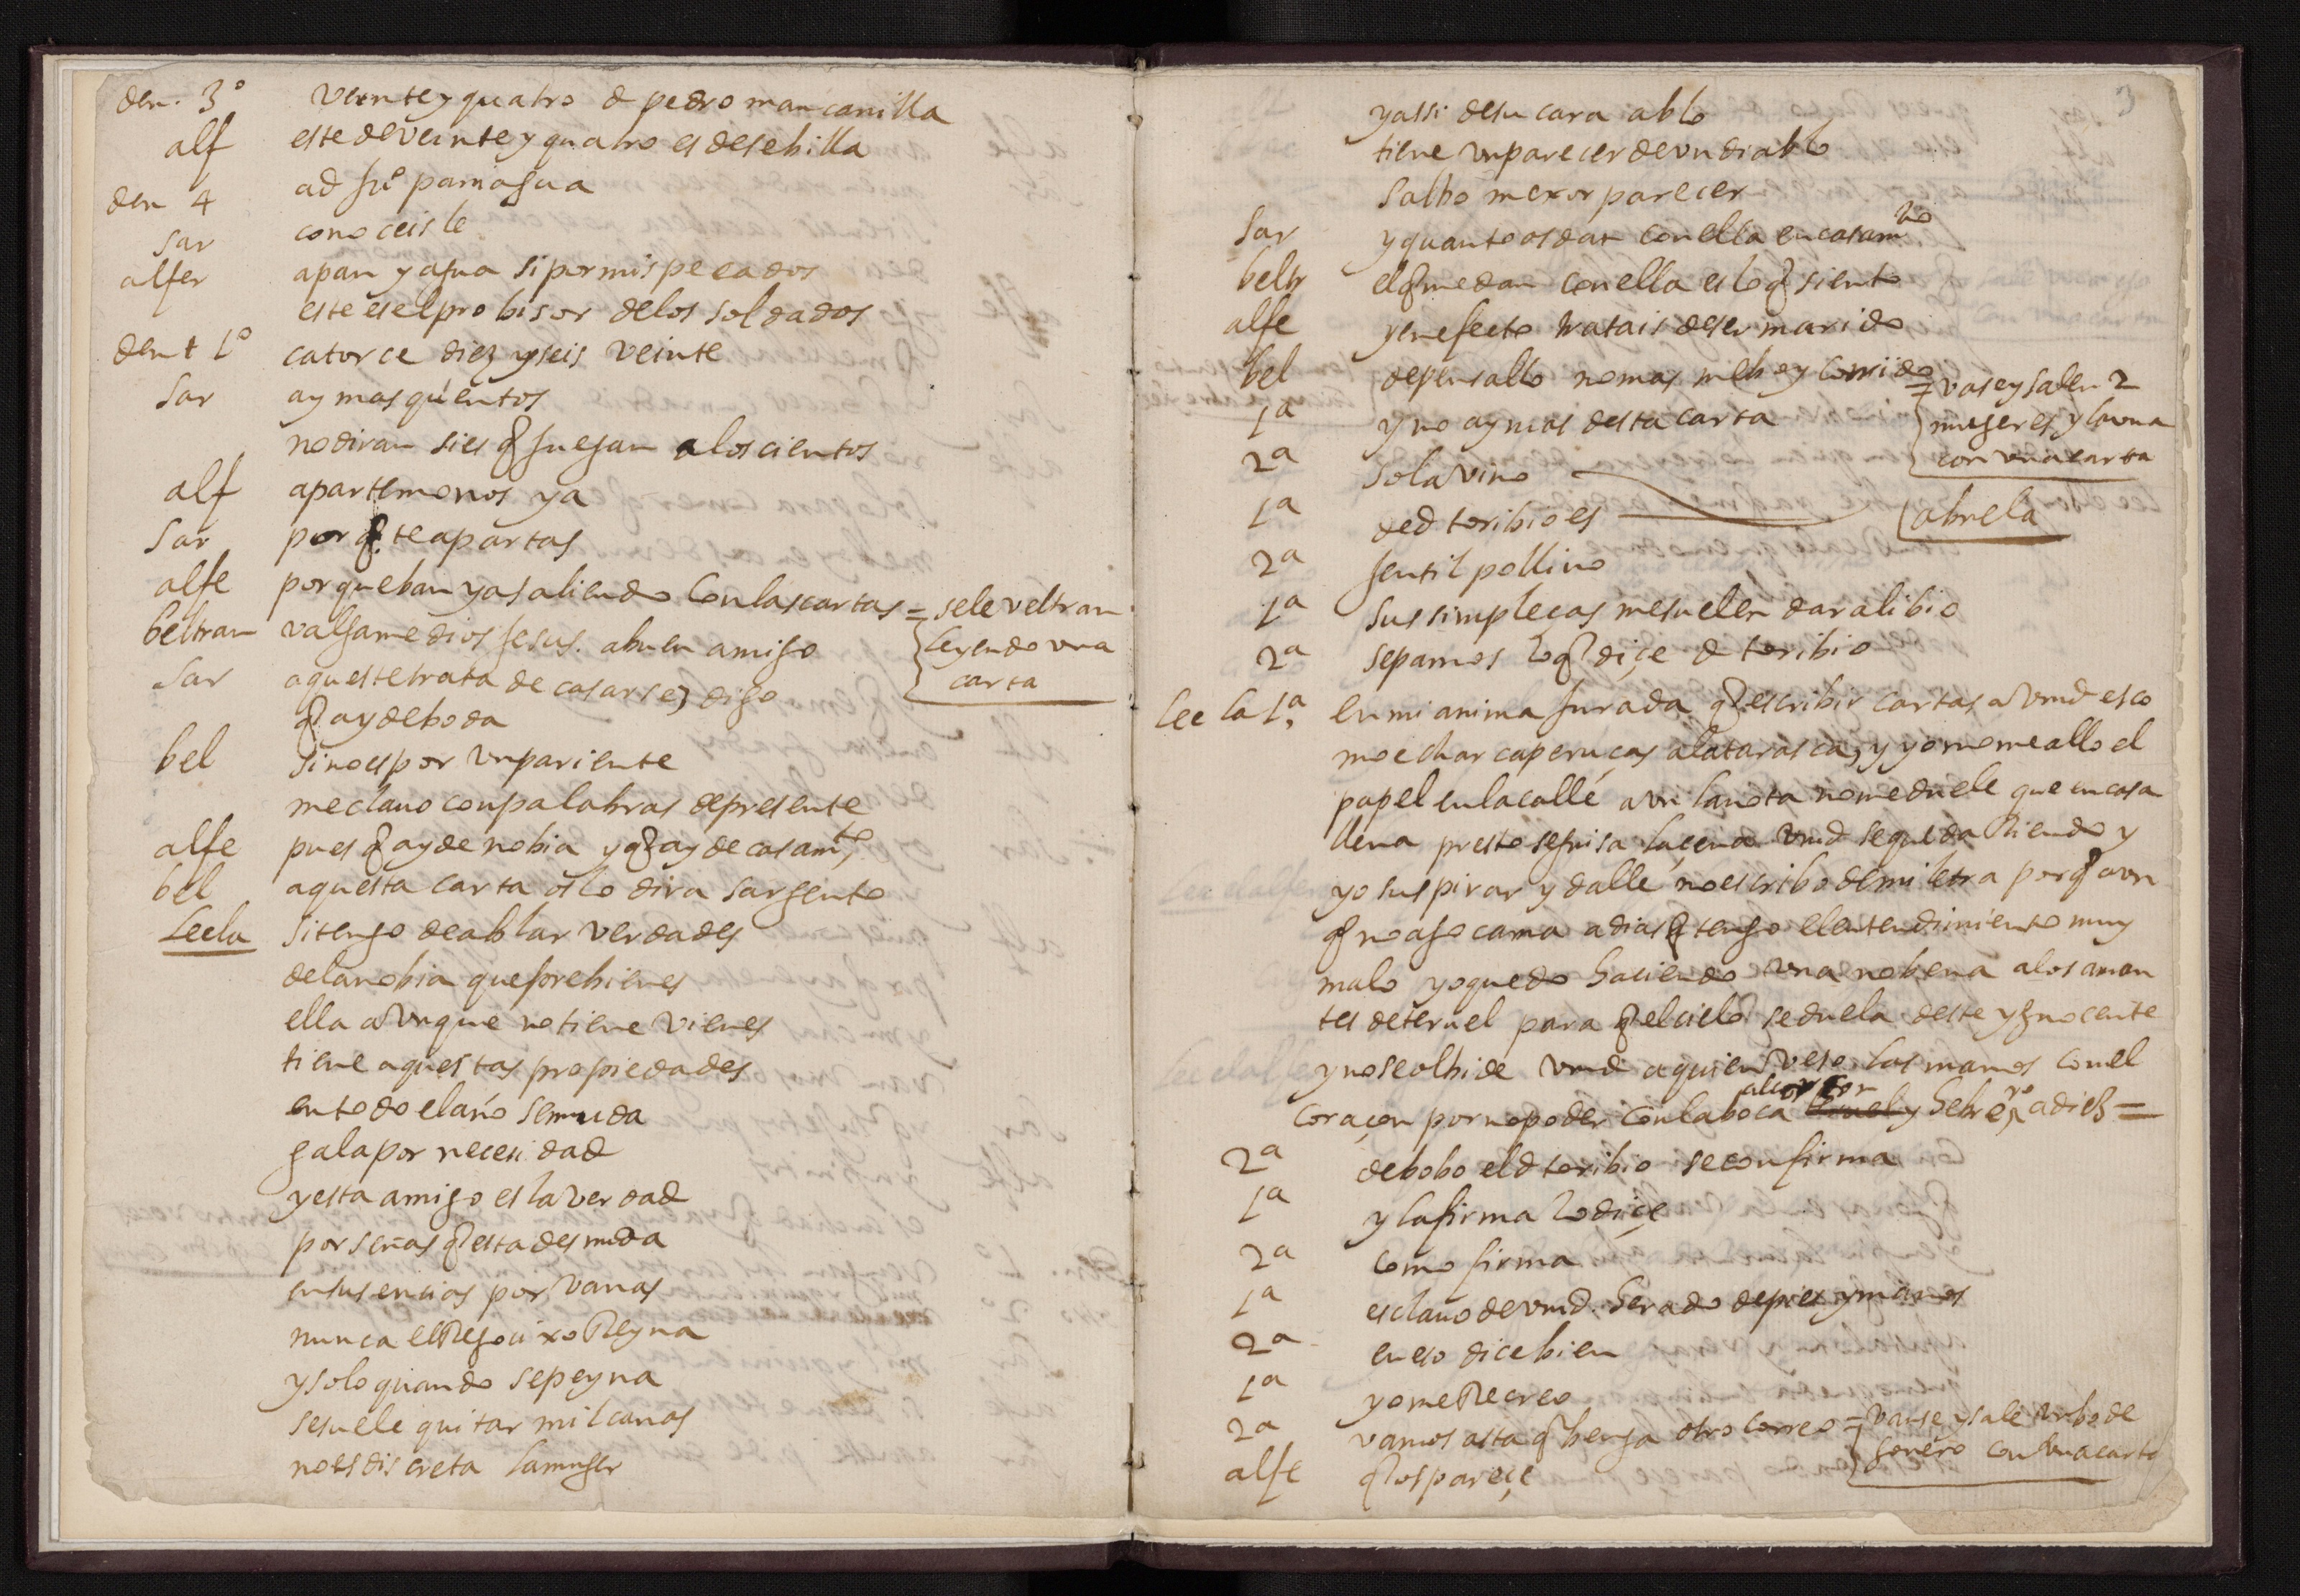 den. 3º veinte y quatro d pedro mancanilla
alf este de veinte y quatro es de sebilla
den 4 a d frco paniagua
sar conoceisle
alfer a pan y agua si por mis pecados
este es el probisor de los soldados
dent 1º catorce diez y seis veinte
sar ay mas quentos
no diran si es q juegan a los cientos
alf apartemonos ya
sar por q te apartas
alfe porque ban ya saliendo Con las cartas = sele veltran
leyendo vna
carta
beltran valgame dios Jesus. a buen amigo
sar aqueste trata de casarse, digo
q ay de boda
bel sino es por vn pariente
me clauo con palabras de presente
alfe pues q ay de nobia y q ay de casamto
bel aquesta carta os lo dira sargento
Leela si tengo de ablar verdades
de la nobia que prebienes
ella avnque no tiene vienes
tiene aquestas propiedades
en todo el año se muda
gala por necesidad
y esta amigo es la verdad
por señas q esta desnuda
en sus encias por vanas
nunca el Regocixo Reyna
y solo quando se peyna
se suele quitar mil canas
no es discreta la muger
3
y assi de su cara ablo
tiene vn parecer de vn diablo
salbo mexor parecer
sar y quanto os dan con ella en casamto
beltr el q me dan con ella es lo q siento
alfe y en efecto tratais de ser marido
bel de pensallo no mas me boy corrido = vase y salen 2
mugeres y la vna
con vna carta
1ª y no ay mas desta carta
2ª sola vino
1ª de d toribio es abrela
2ª gentil pollino
1ª sus simpleças me suelen dar alibio
2ª sepamos lo q diçe d toribio
lee la 1ª, en mi anima jurada q escribir cartas a vmd es co
mo echar caperuças a la tarasca, y yo no me allo el
papel en la calle avn la nota no me duele que en casa
llena presto se guisa la çena vmd se queda Riendo y
yo suspirar y dalle no escribo de mi letra porq avn
q no ago cama a dias q tengo el entendimiento muy
malo yo quedo haciendo vna nobena a los aman
tes de teruel para q el cielo se duela deste ygnocente
y no se olbide vmd a quien veso las manos con el
coraçon por no poder con la boca teruel y hebrero, a diez =
2ª de bobo el d toribio se confirma
1ª y la firma lo diçe
2ª como firma
1ª esclauo de vmd. herado de pies y manos
2ª en eso dice bien
1ª yo me Recreo
2ª vamos asta q benga otro correo = vanse y sale vn bode
gonero con vna carta
alfe q os pareçe